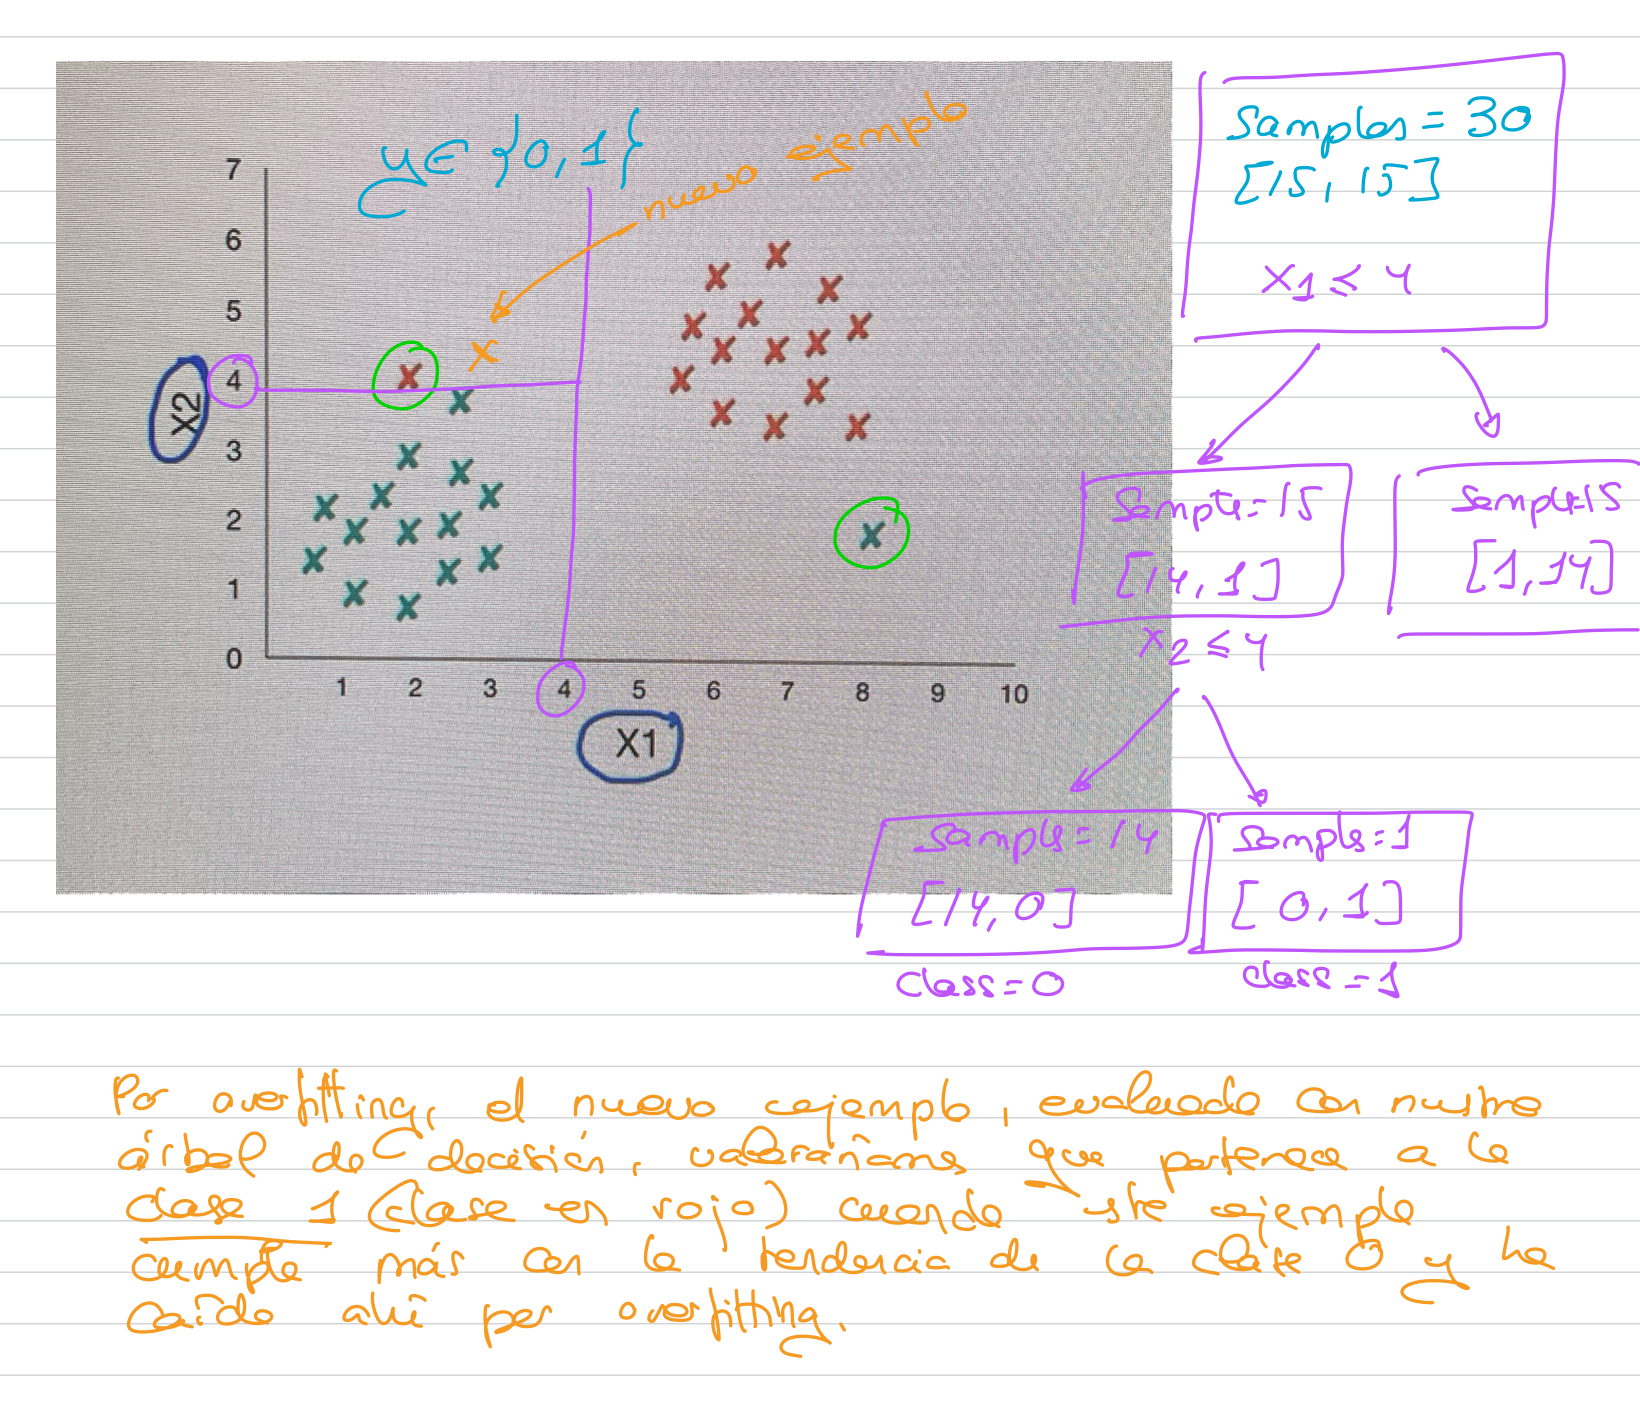 y ∈ {0, 1}
nuevo ejemplo
7
6
5
4
3
2
1
0
X2
1 2 3 4 5 6 7 8 9 10
X1
Samples = 30
[15, 15]
X1 ≤ 4
Sample = 15
[14, 1]
X2 ≤ 4
Sample=15
[1, 14]
Samples = 14
[14, 0]
Class = 0
Samples = 1
[0, 1]
class = 1
Por overfitting, el nuevo ejemplo, evaluado con nuestro
árbol de decisión, valoraríamos que pertenece a la
clase 1 (clase en rojo) cuando este ejemplo
cumple más con la tendencia de la clase 0 y ha
caído ahí por overfitting.